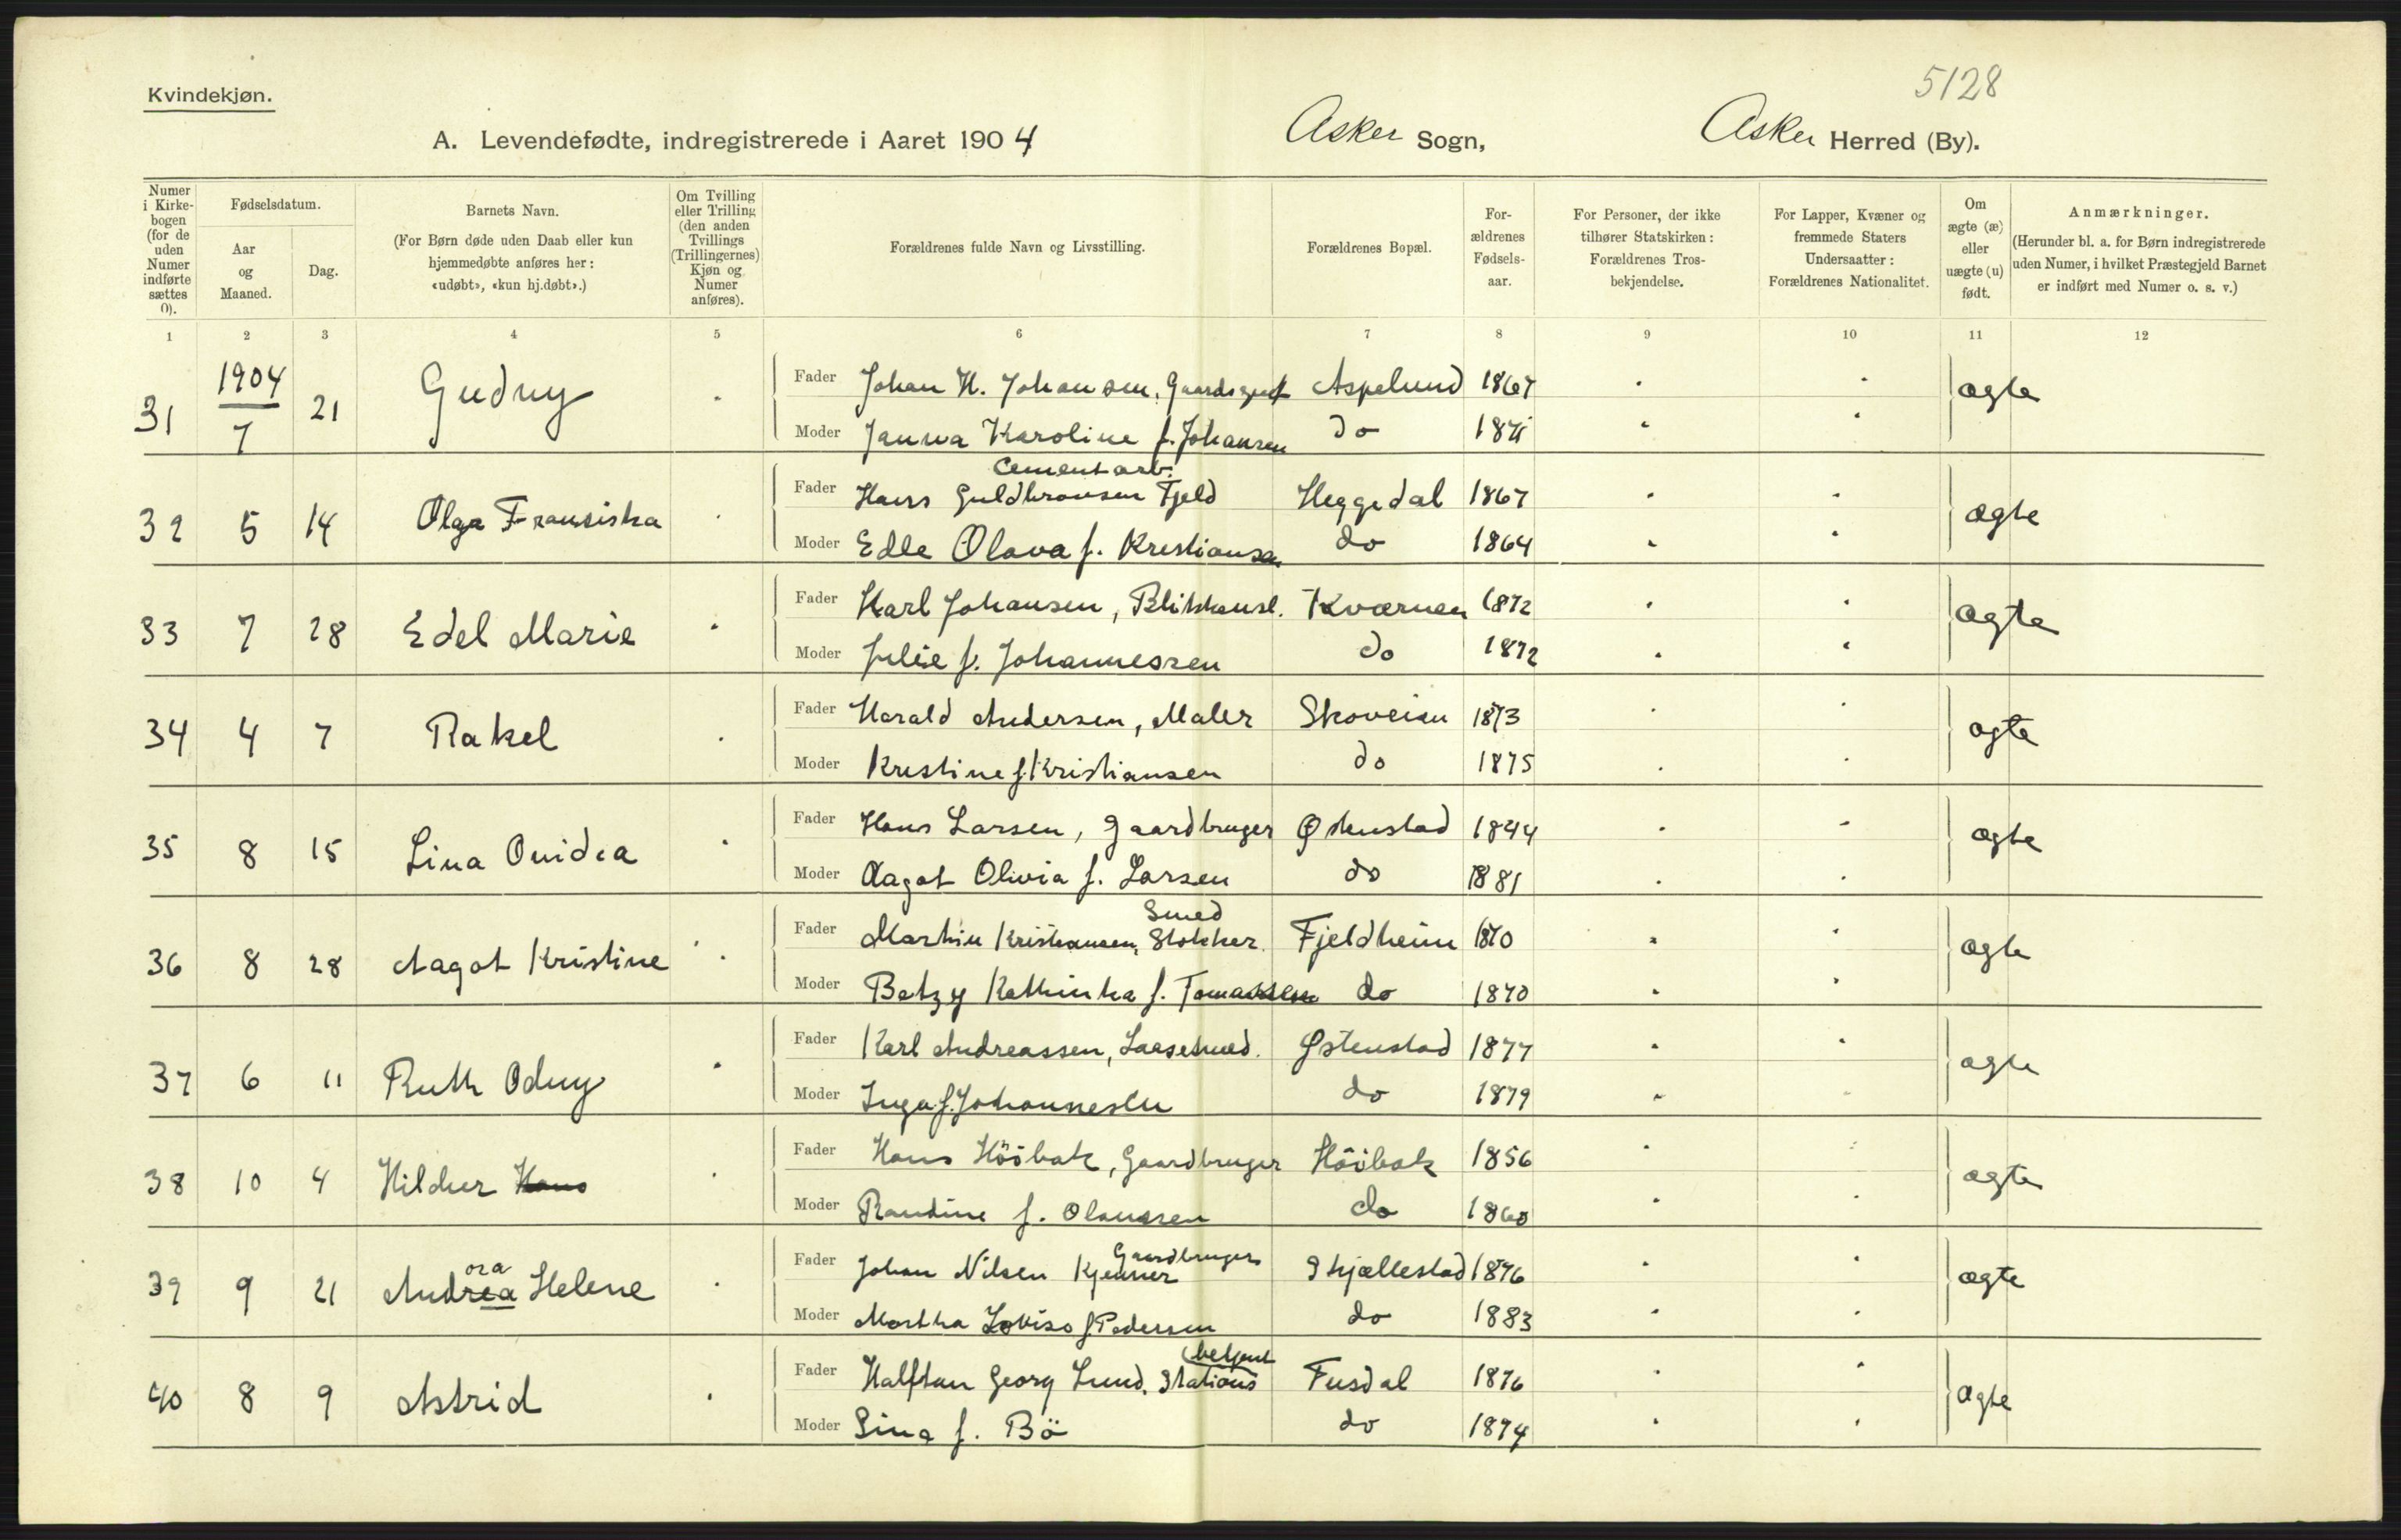 5128
Kvindekjøn.
A. Levendefødte, indregistrerede i Aaret 1904 Asker Sogn, Asker Herred (By).
Numer i Kirkebogen (for de uden Numer indførte sættes 0).
Fødselsdatum.
Aar og Maaned.
Dag.
Barnets Navn.
(For Børn døde uden Daab eller kun hjemmedøbte anføres her: «udøbt», «kun hj.døbt».)
Om Tvilling eller Trilling (den anden Tvillings (Trillingernes) Kjøn og Numer anføres).
Forældrenes fulde Navn og Livsstilling.
Forældrenes Bopæl.
Forældrenes Fødselsaar.
For Personer, der ikke tilhører Statskirken: Forældrenes Trosbekjendelse.
For Lapper, Kvæner og fremmede Staters Undersaatter: Forældrenes Nationalitet.
Om ægte (æ) eller uægte (u) født.
Anmærkninger.
(Herunder bl. a. for Børn indregistrerede uden Numer, i hvilket Præstegjeld Barnet er indført med Numer o. s. v.)
1 2 3 4 5 6 7 8 9 10 11 12
31 1904 7 21 Gudny ægte
Fader Johan H. Johansen, Aspelund 1867
Moder Janna Karoline f. Johansen do
32 5 14 Olga Fransiska ægte
Cementarb.
Fader Hans Guldbransen Fjeld Heggedal 1867
Moder Edle Olava f. Kristiansen do 1864
33 7 28 Edel Marie ægte
Fader Karl Johansen, Kværnen 1872
Moder Julie f. Johannessen do 1872
34 4 7 Rakel ægte
Fader Harald Andersen, Maler Skoveien 1873
Moder Kristine f. Kristiansen do 1875
35 8 15 Lina Ovidea ægte
Fader Hans Larsen, Gaardbruger Østenstad 1844
Moder Aagot Olivia f. Larsen do 1881
36 8 28 Aagot Kristine ægte
Smed
Fader Martin Kristiansen, Stokker. Fjeldheim 1870
Moder Betzy Kathinka f. Tomassen do 1870
37 6 11 Ruth Odny ægte
Fader Karl Andreassen, Laasesmed. Østenstad 1877
Moder Inga f. Johannesen do 1879
38 10 4 Hildur Hans ægte
Fader Hans Höibak, Gaardbruger Höibak 1856
Moder Randine f. Olaussen do 1860
39 9 21 Andrea ora Helene ægte
Gaardbruger
Fader Johan Nilsen Kjenner Skjællestad 1876
Moder Martha Lovise f. Pedersen do 1883
40 8 9 Astrid ægte
betjent
Fader Halfdan Georg Lund, Stations Fusdal 1876
Moder Sina f. Bö do 1874